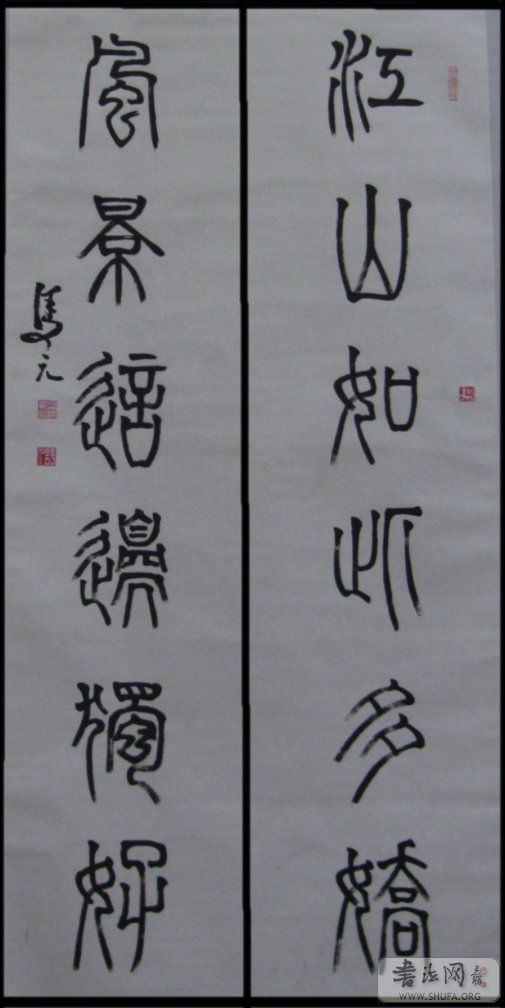 江山如此多嬌
風景這邊獨好
書法网
WWW.SHUFA.ORG